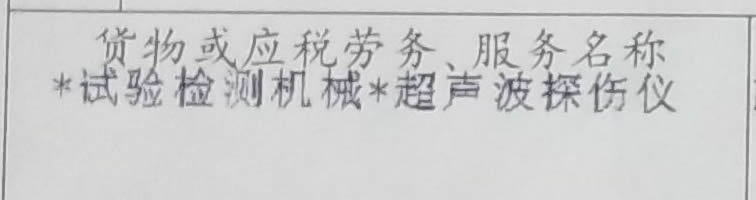 货物或应税劳务、服务名称
*试验检测机械*超声波探伤仪